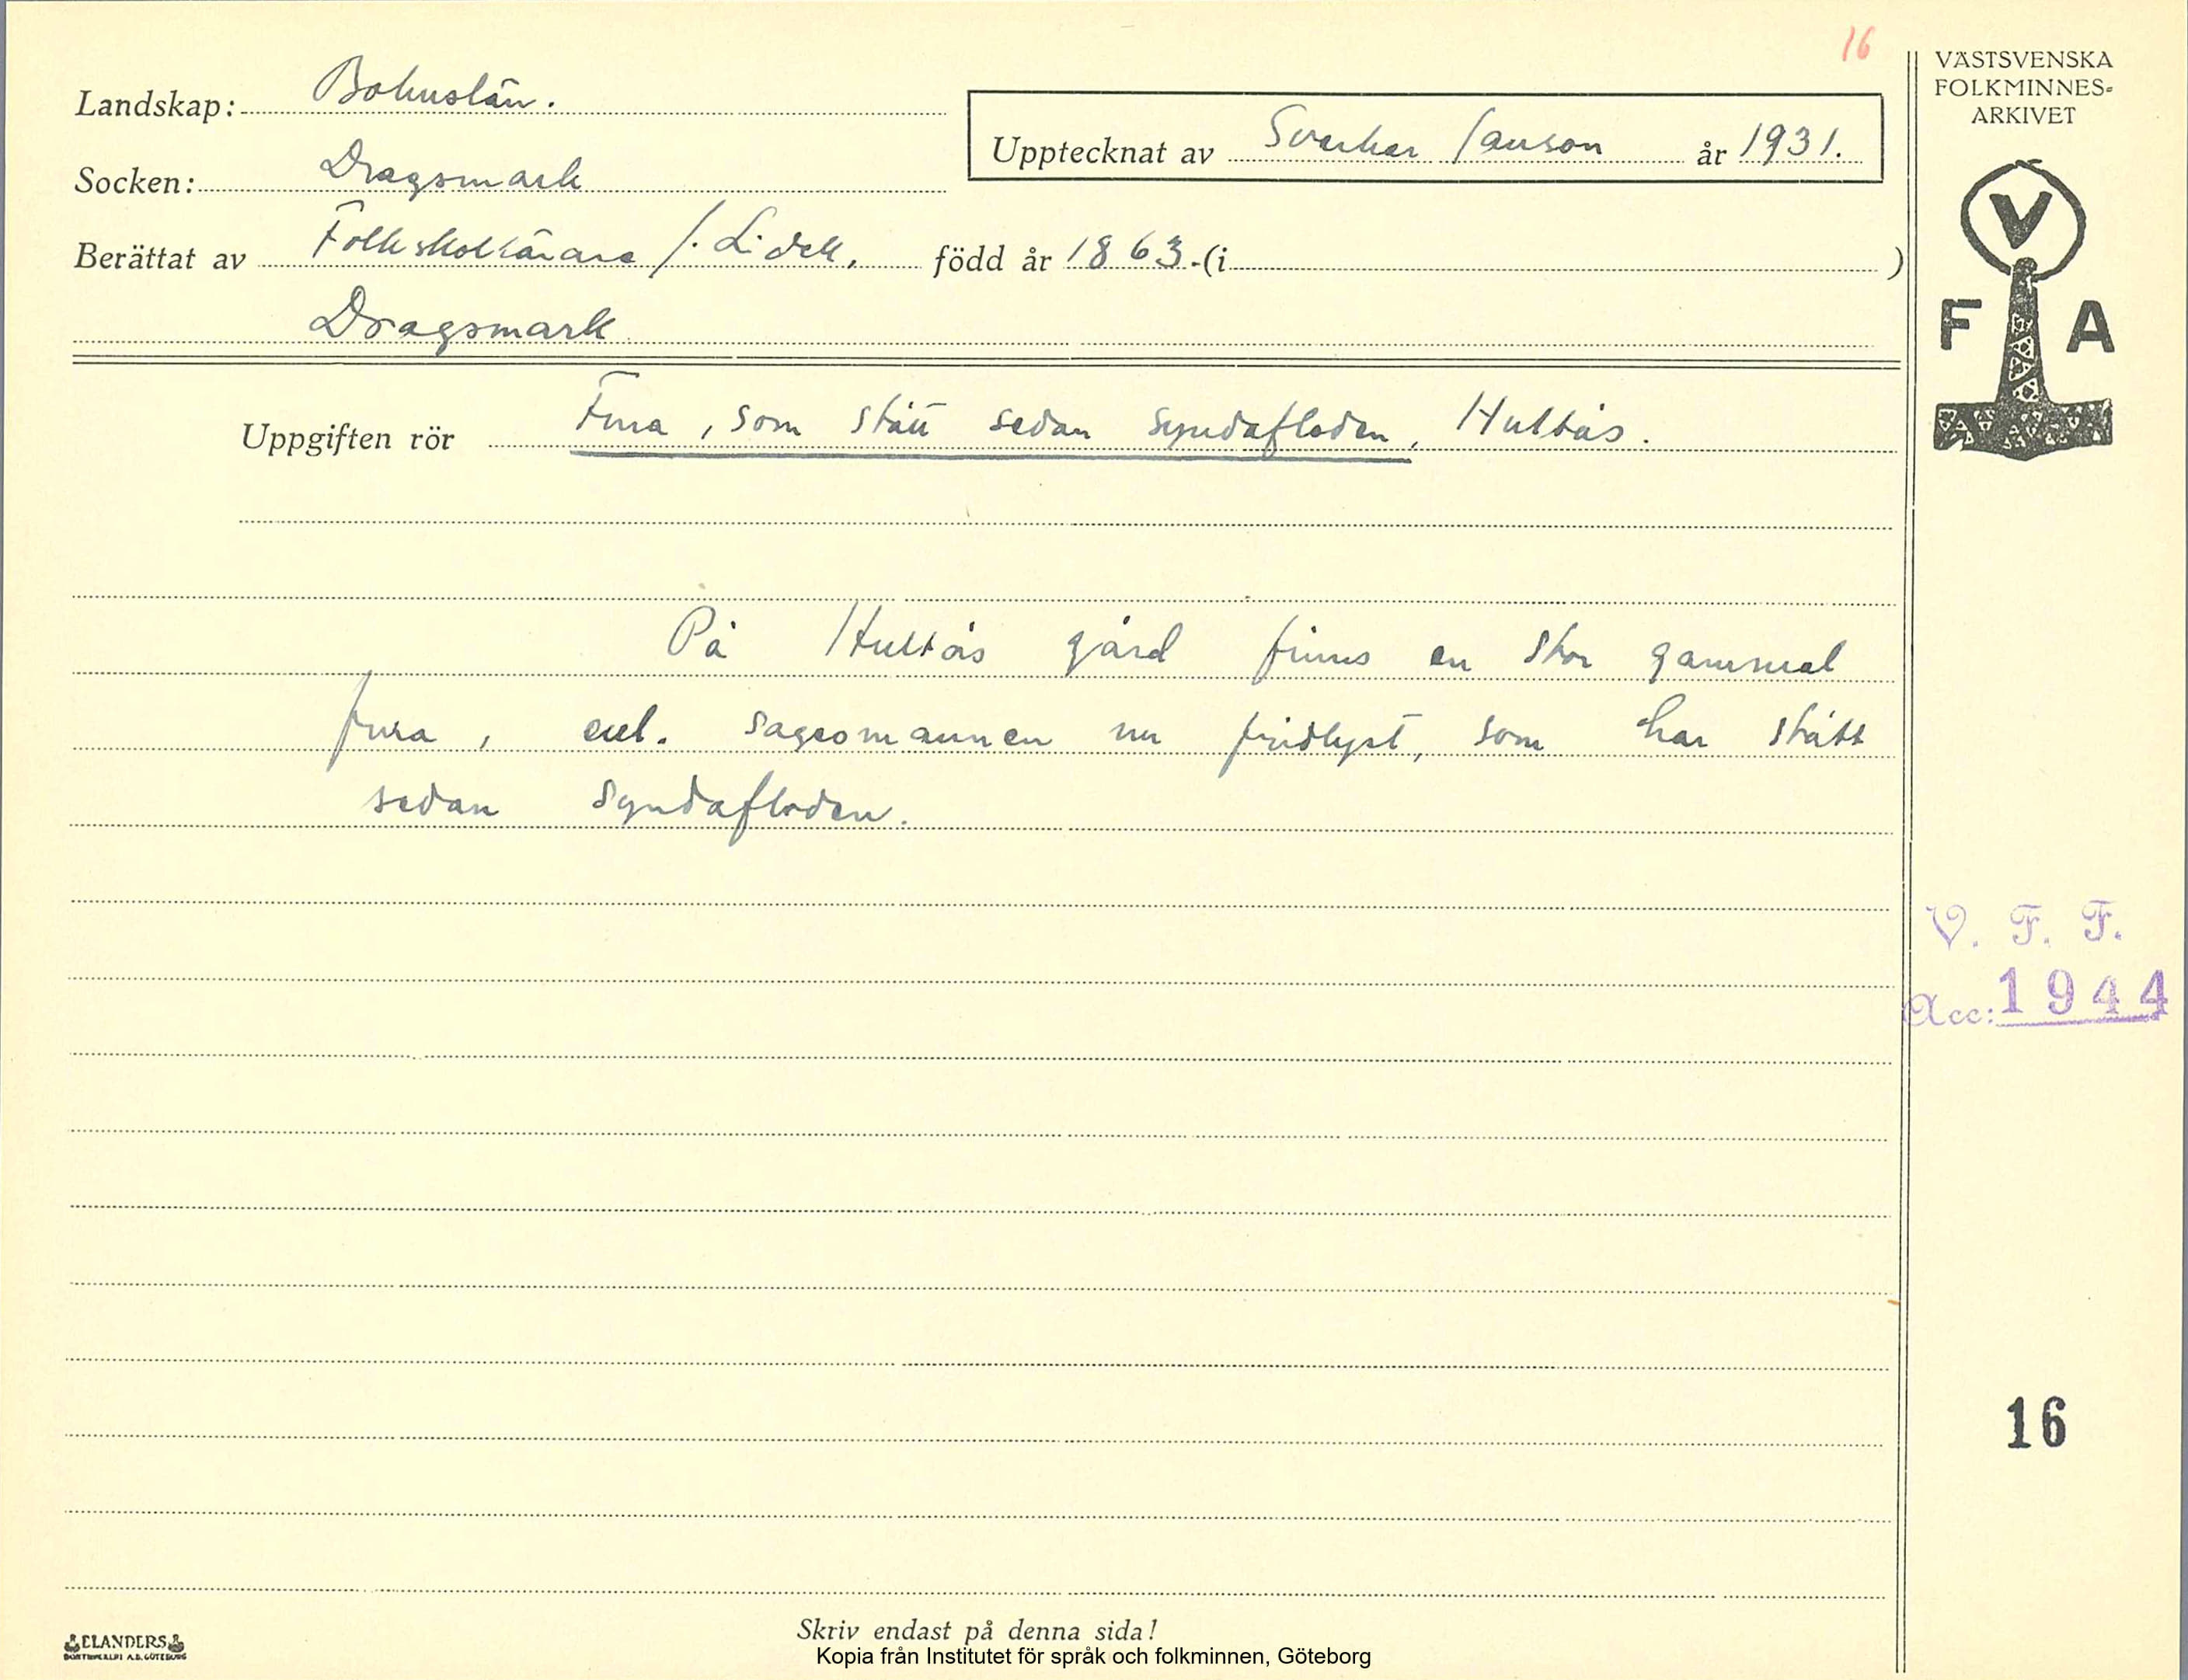 16
VÄSTSVENSKA
FOLKMINNES-
ARKIVET
Landskap: Bohuslän.
Upptecknat av Sverker Janson år 1931.
Socken: Dragsmark
Berättat av Folkskollärare J. Lidell, född år 1863 (i )
Dragsmark
V
F A
Uppgiften rör Fura, som stått sedan syndafloden, Hultås.
På Hultås gård finns en stor gammal
fura, enl. sagesmannen nu fridlyst, som har stått
sedan syndafloden.
V. F. F.
Acc: 1944
16
Skriv endast på denna sida!
ELANDERS
BOKTRYCKERI A.B. GÖTEBORG
Kopia från Institutet för språk och folkminnen, Göteborg